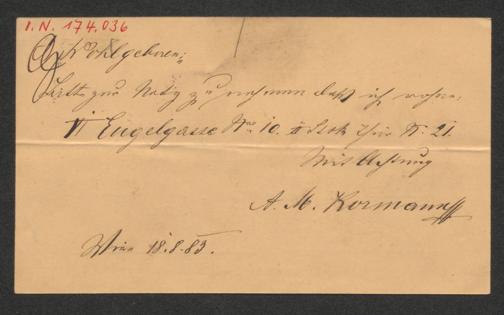 I.N. 174.036
Wohlgeboren;
Bitte zur Notiz zu nehmen daß ich wohne,
VI Engelgasse Nro 10. II Stok Thür N. 21.
Mit Achtung
A. M. Kormann
Wien 18.8.83.